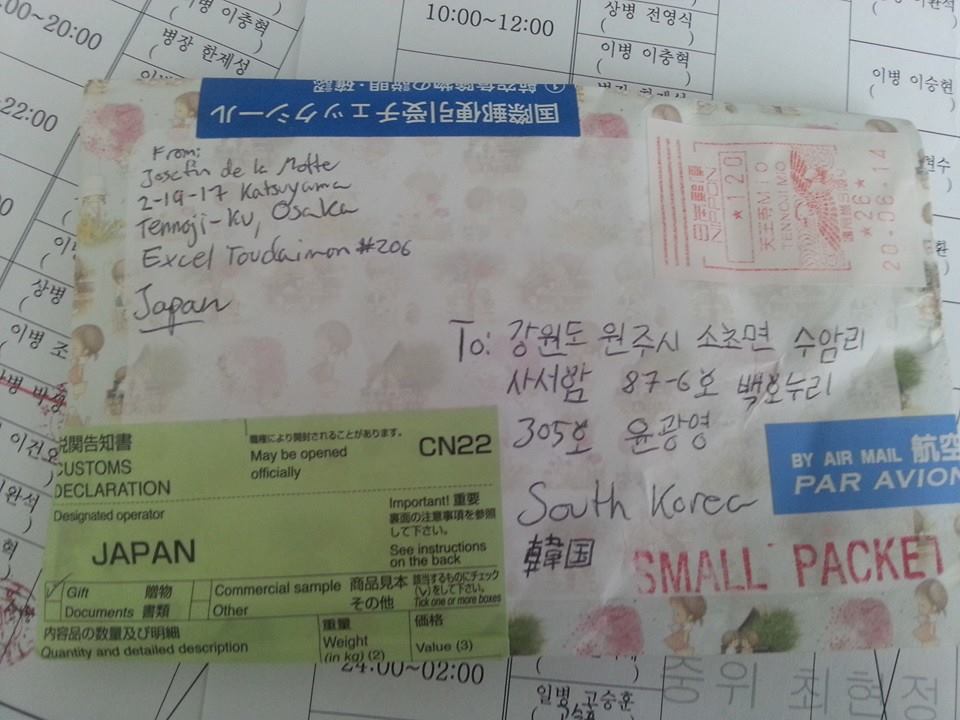 10:00~12:00
상병 전영식
이병 이충혁
이병 이승현
이병 이충혁
20:00
병장 한제성
22:00
국
国際郵便引受チェックシール
① 航空危険物の説明・確認
From:
Josefin de la Motte
2-19-17 Katsuyama
Tennoji-Ku, Osaka
Excel Toudaimon #206
Japan
日本郵便
NIPPON
*120
天王寺MiO
TENNOJIMO
*26*
20.06.14
To: 강원도 원주시 소초면 수암리
사서함 87-6호 백호누리
305호 윤광영
South Korea
韓国
BY AIR MAIL 航空
PAR AVION
SMALL PACKET
税関告知書
CUSTOMS
DECLARATION
職権により開封されることがあります。
May be opened
officially
CN22
Designated operator
JAPAN
Important! 重要
裏面の注意事項を参照
して下さい。
See instructions
on the back
Gift 贈物
Documents 書類
Commercial sample 商品見本
Other その他
該当するものにチェック
(√)をして下さい。
Tick one or more boxes
内容品の数量及び明細
Quantity and detailed description
重量
Weight
(in kg) (2)
価格
Value (3)
상병
이병 조
이건오
완석
24:00~02:00
일병 고승훈
중위 최현정